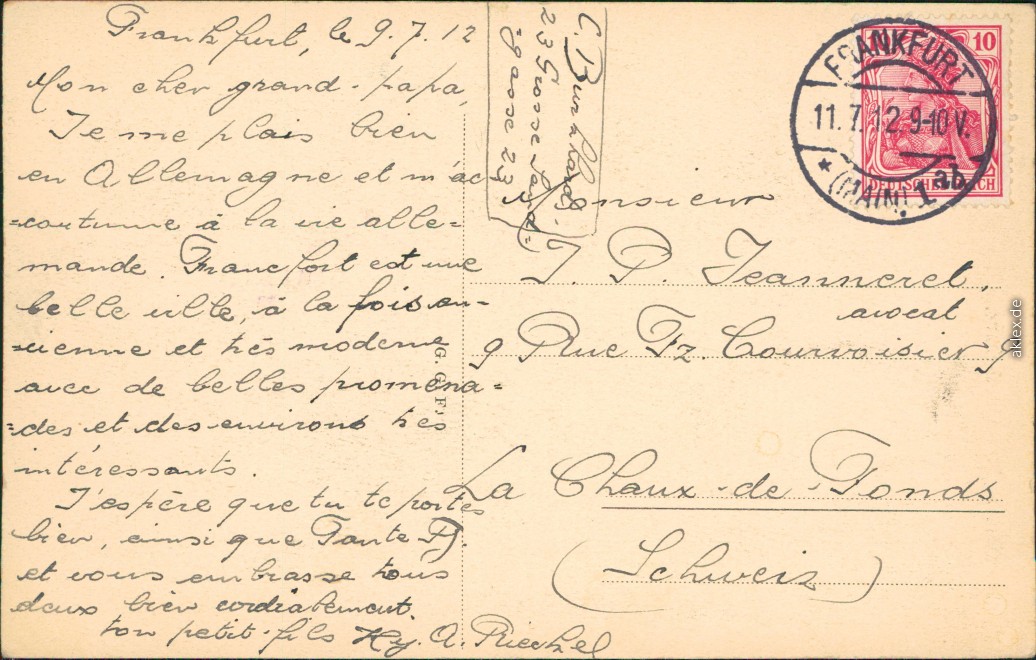 Frankfurt, le 9.7.12
Mon cher grand-papa,
Je me plais bien
en Allemagne et m'ac
=coutume à la vie alle=
mande. Francfort est une
belle ville, à la fois an-
-cienne et très moderne
avec de belles promena=
=des et des environs très
intéressants.
J'espère que tu te portes
bien, ainsi que Tante
et vous embrasse tous
deux bien cordialement.
ton petit-fils Hy. A.
C. Burkhardt.
23 Grosse Sand=
=gasse 23
G. G. F.
FRANKFURT
11.7.12 9-10 V.
* (MAIN) 1 ab.
10
DEUTSCHES REICH
Monsieur
J. P. Jeanneret,
avocat
9 Rue Fz. Courvoisier 9
La Chaux-de-Fonds
(Schweiz)
aklex.de